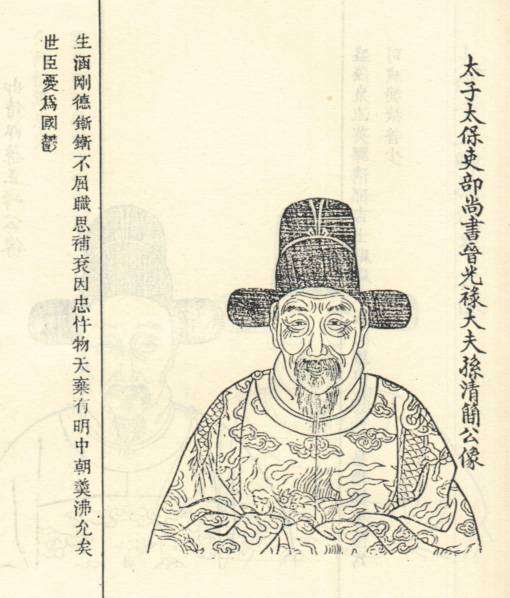 太子太保吏部尚書晉光祿大夫孫清簡公像
生涵剛德不屈職思補袞因忠忤物天棄有明中朝羹沸允矣
世臣憂爲國鬱